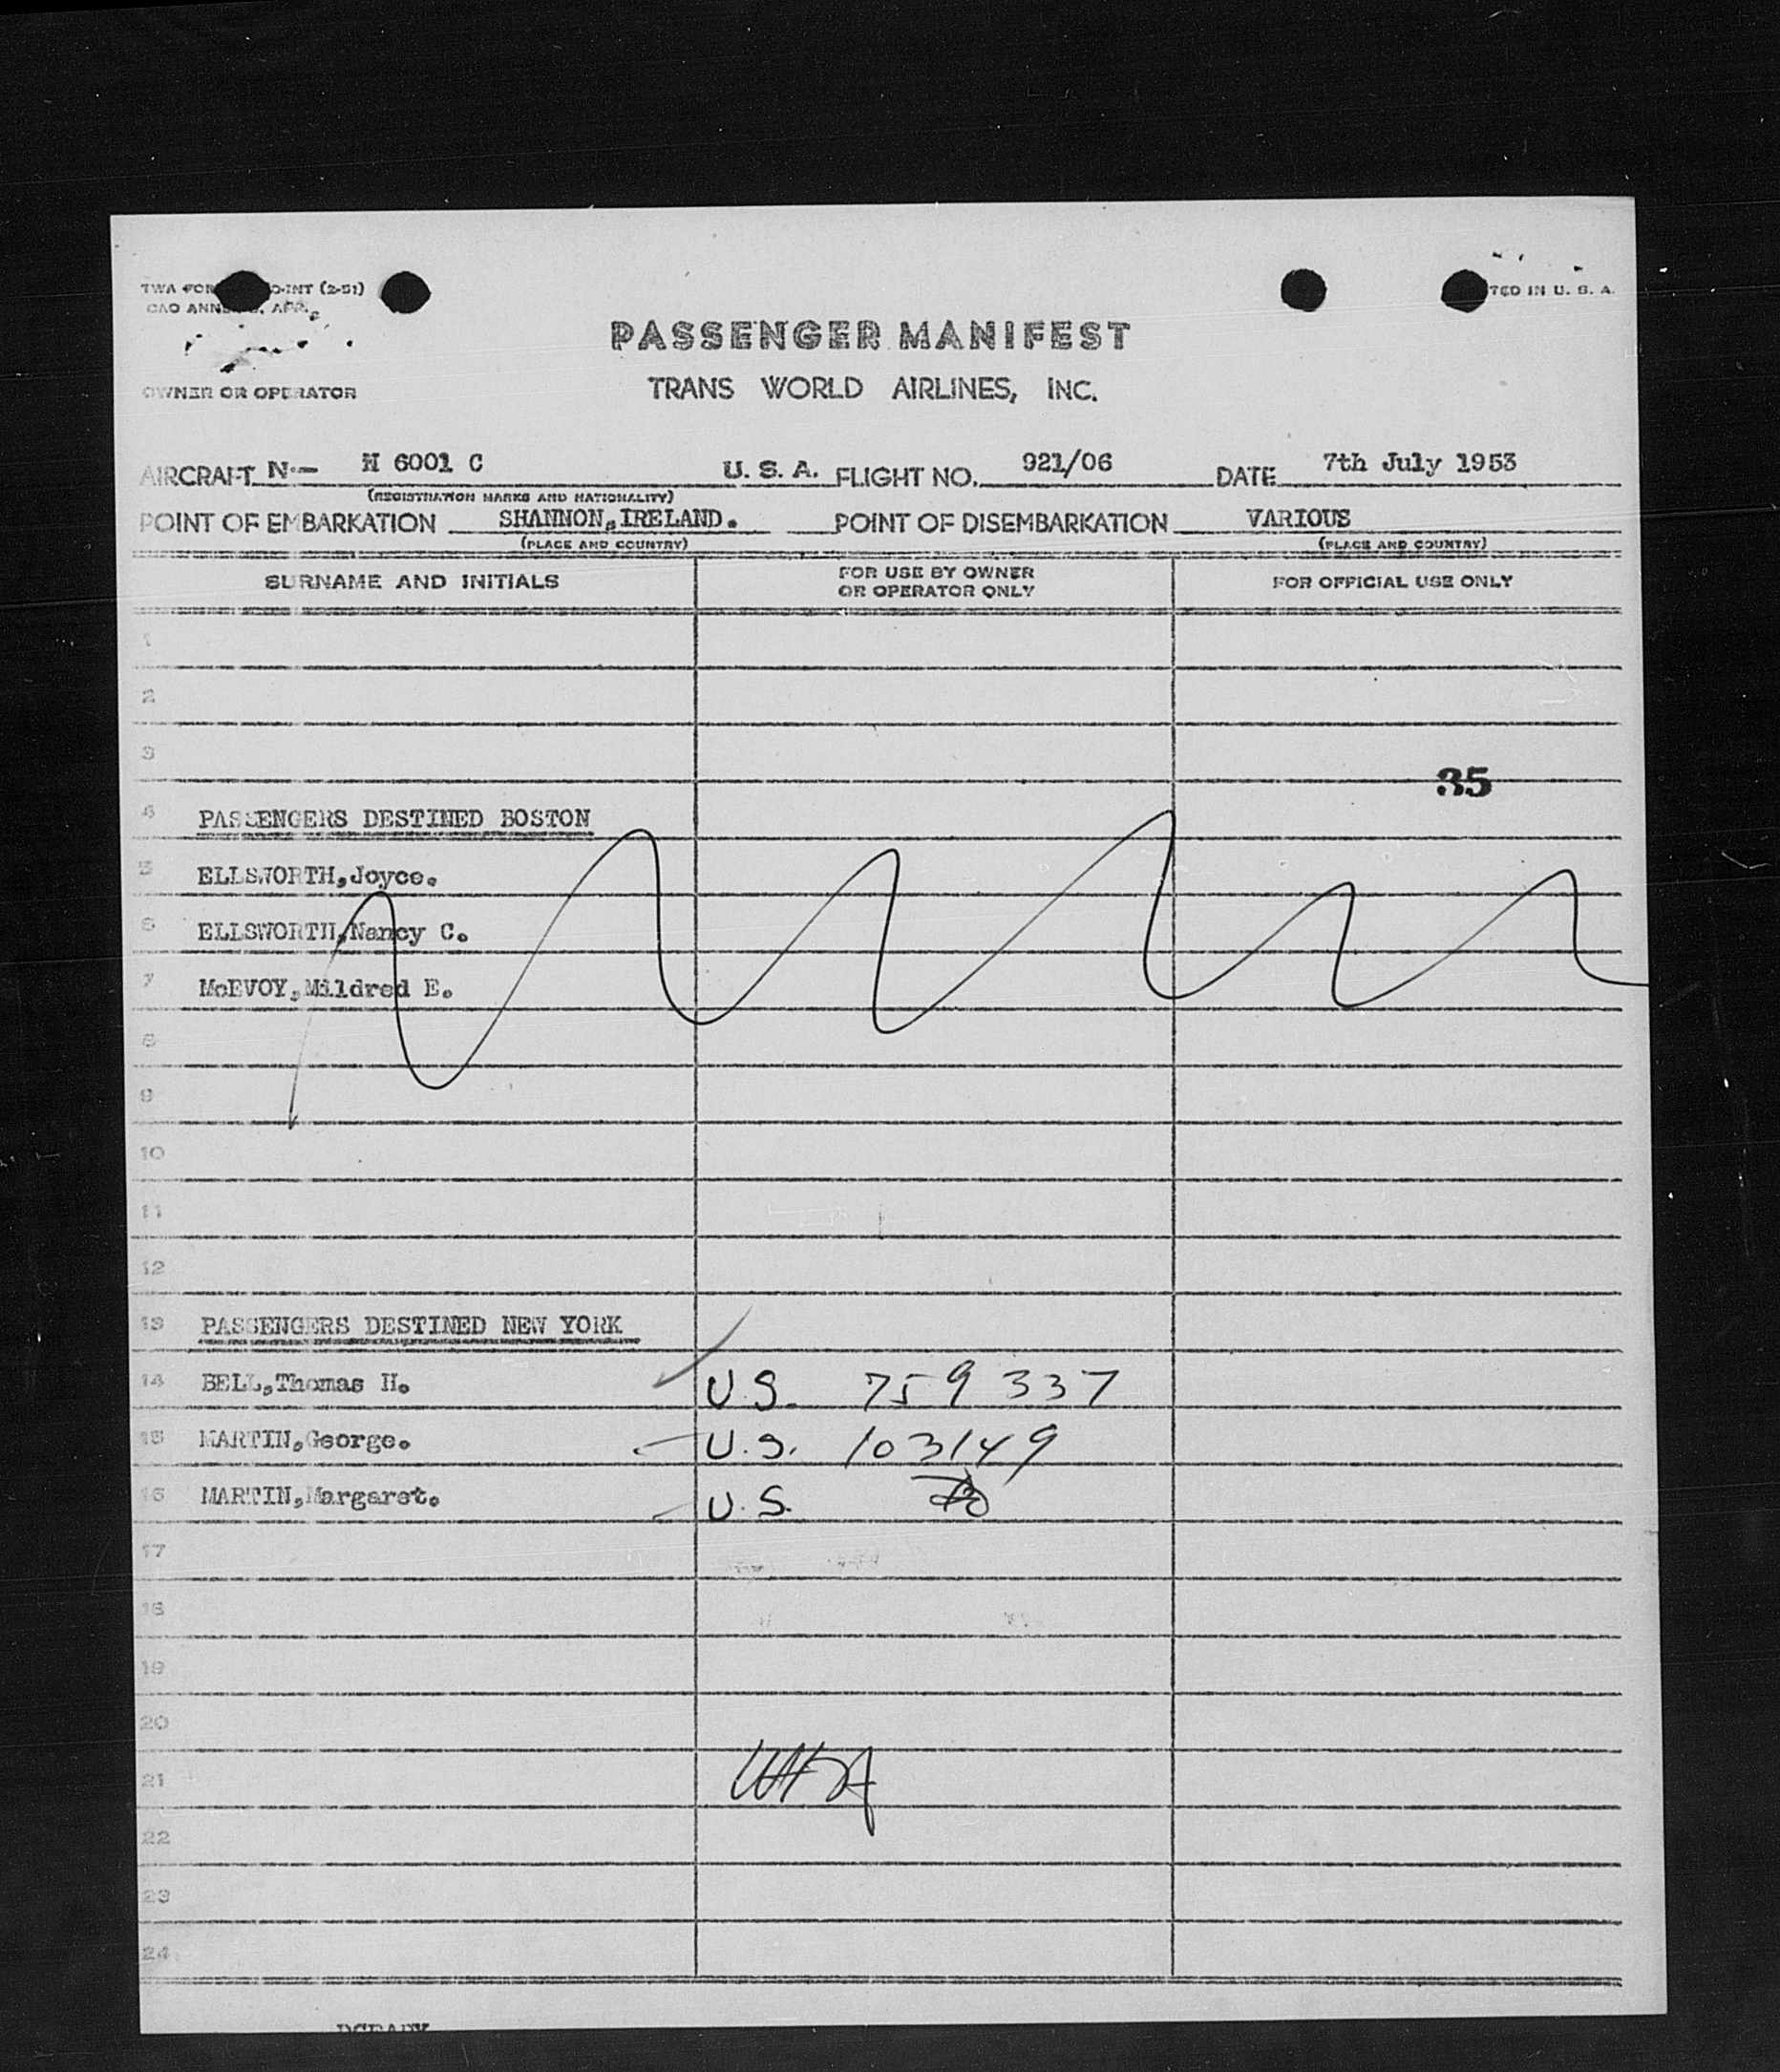 TWA FOR INT (2-51) TED IN U. S. A.
CAO ANNE
PASSENGER MANIFEST
OWNER OR OPERATOR TRANS WORLD AIRLINES, INC.
AIRCRAFT N-- N 6001 C U. S. A. FLIGHT NO. 921/06 DATE 7th July 1953
(REGISTRATION MARKS AND NATIONALITY)
POINT OF EMBARKATION SHANNON,IRELAND. POINT OF DISEMBARKATION VARIOUS
(PLACE AND COUNTRY) (PLACE AND COUNTRY)
SURNAME AND INITIALS FOR USE BY OWNER OR OPERATOR ONLY FOR OFFICIAL USE ONLY
1
2
3
35
4 PASSENGERS DESTINED BOSTON
5 ELLSWORTH,Joyce.
6 ELLSWORTH,Nancy C.
7 McEVOY,Mildred E.
8
9
10
11
12
13 PASSENGERS DESTINED NEW YORK
14 BELL,Thomas H. U.S. 759337
15 MARTIN,George. U.S. 103149
16 MARTIN,Margaret. U.S.
17
18
19
20
21
22
23
24